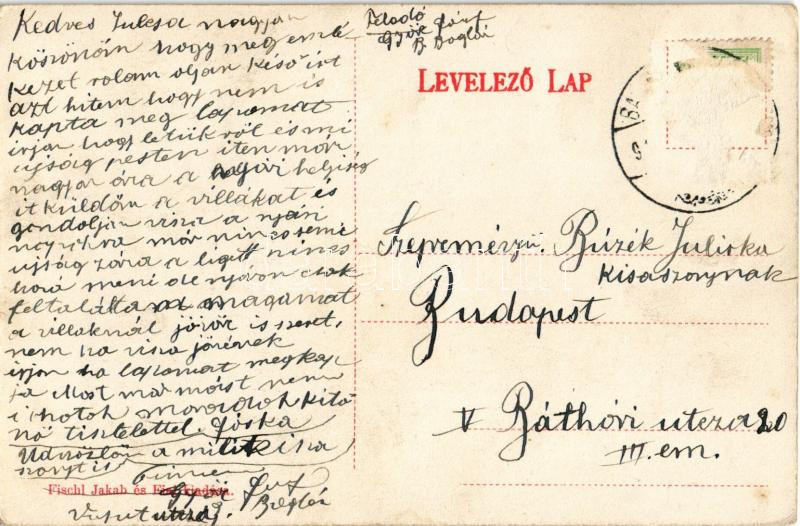 Kedves Julcsa nagyon
köszönöm hogy meg emlé
kezet rolam oljan késö irt
azt hitem hogy nem is
kapta meg laponat
irjon hogy letükröl és mi
ujság pesten iten már
nagyon ára a helyiség
it küldöm a villákat és
gondoljon visa a nyári
napokra már nincs semi
ujság zára a ligett nincs
hová meni de nyáron csak
feltaláltam magamat
a villaknál jövöre is szeret,
nem ha visa jönének
irjon ha lapomat megkap
ta Most már mást nem
irhatok maradok kitö
nö tisztelettel Jóska
Üdvözlöm a
is
Feladó
Györi Józsf
B Boglár
LEVELEZŐ LAP
Szepreményü. Búzik Juliska
kisaszonynak
Budapest
V Báthóri utcza 20
III. em.
Fischl Jakab és Fiai kiadása.
Györi Józsf
Boglár